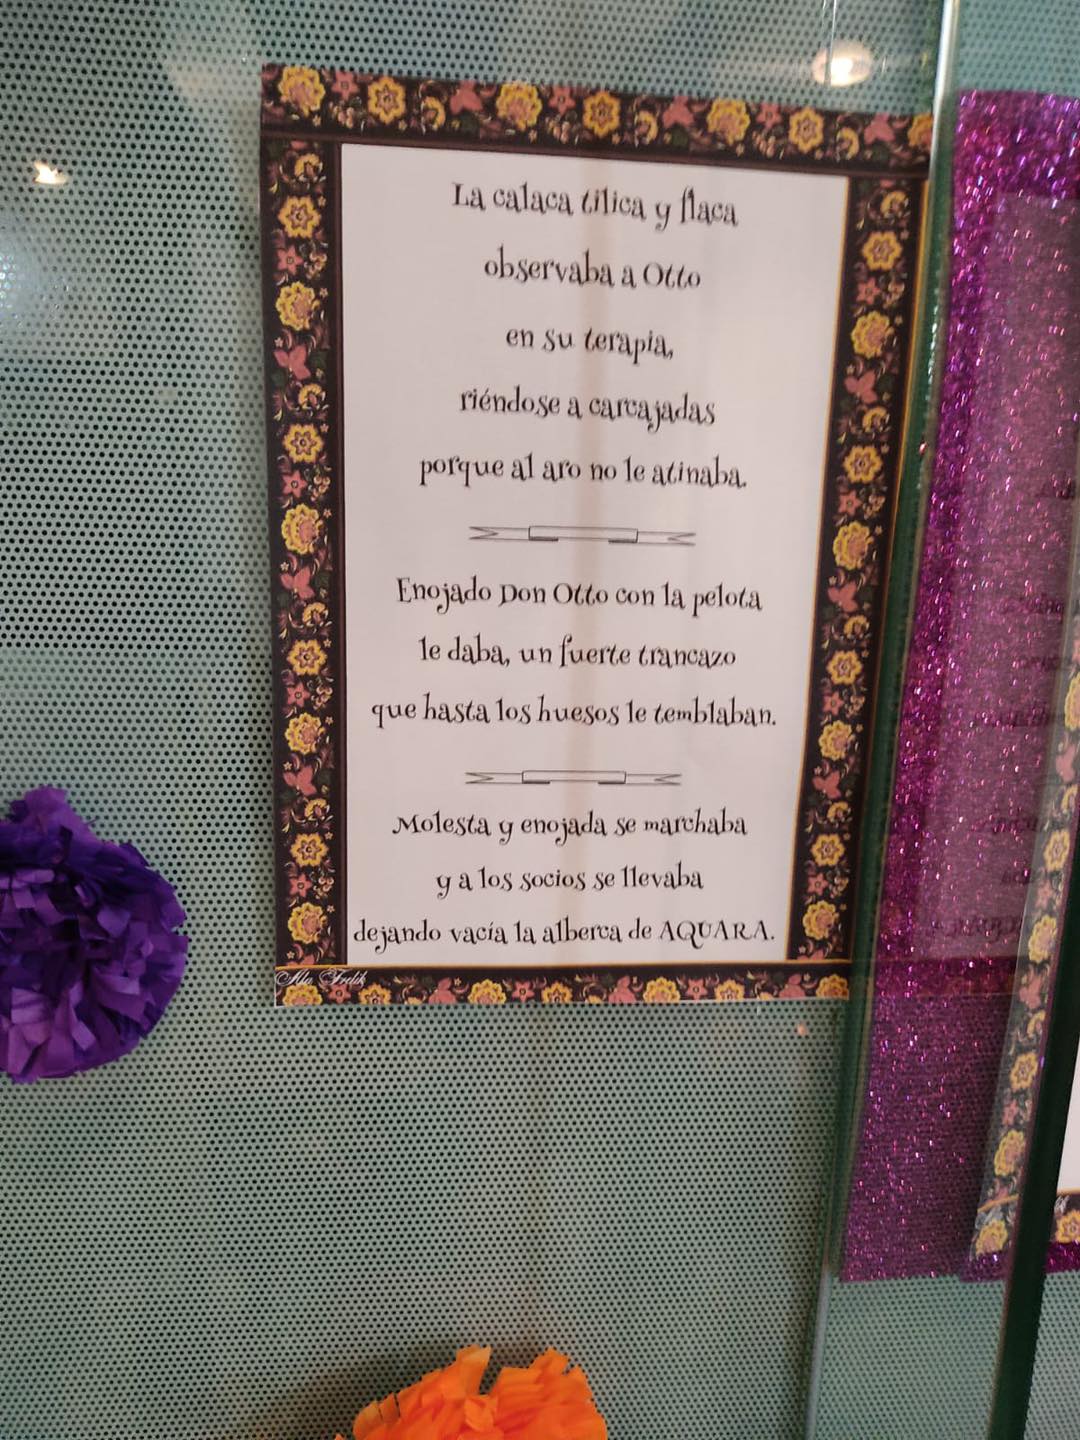 La calaca tilica y flaca
observaba a Otto
en su terapia,
riéndose a carcajadas
porque al aro no le atinaba.
Enojado Don Otto con la pelota
le daba, un fuerte trancazo
que hasta los huesos le temblaban.
Molesta y enojada se marchaba
y a los socios se llevaba
dejando vacía la alberca de AQUARA.